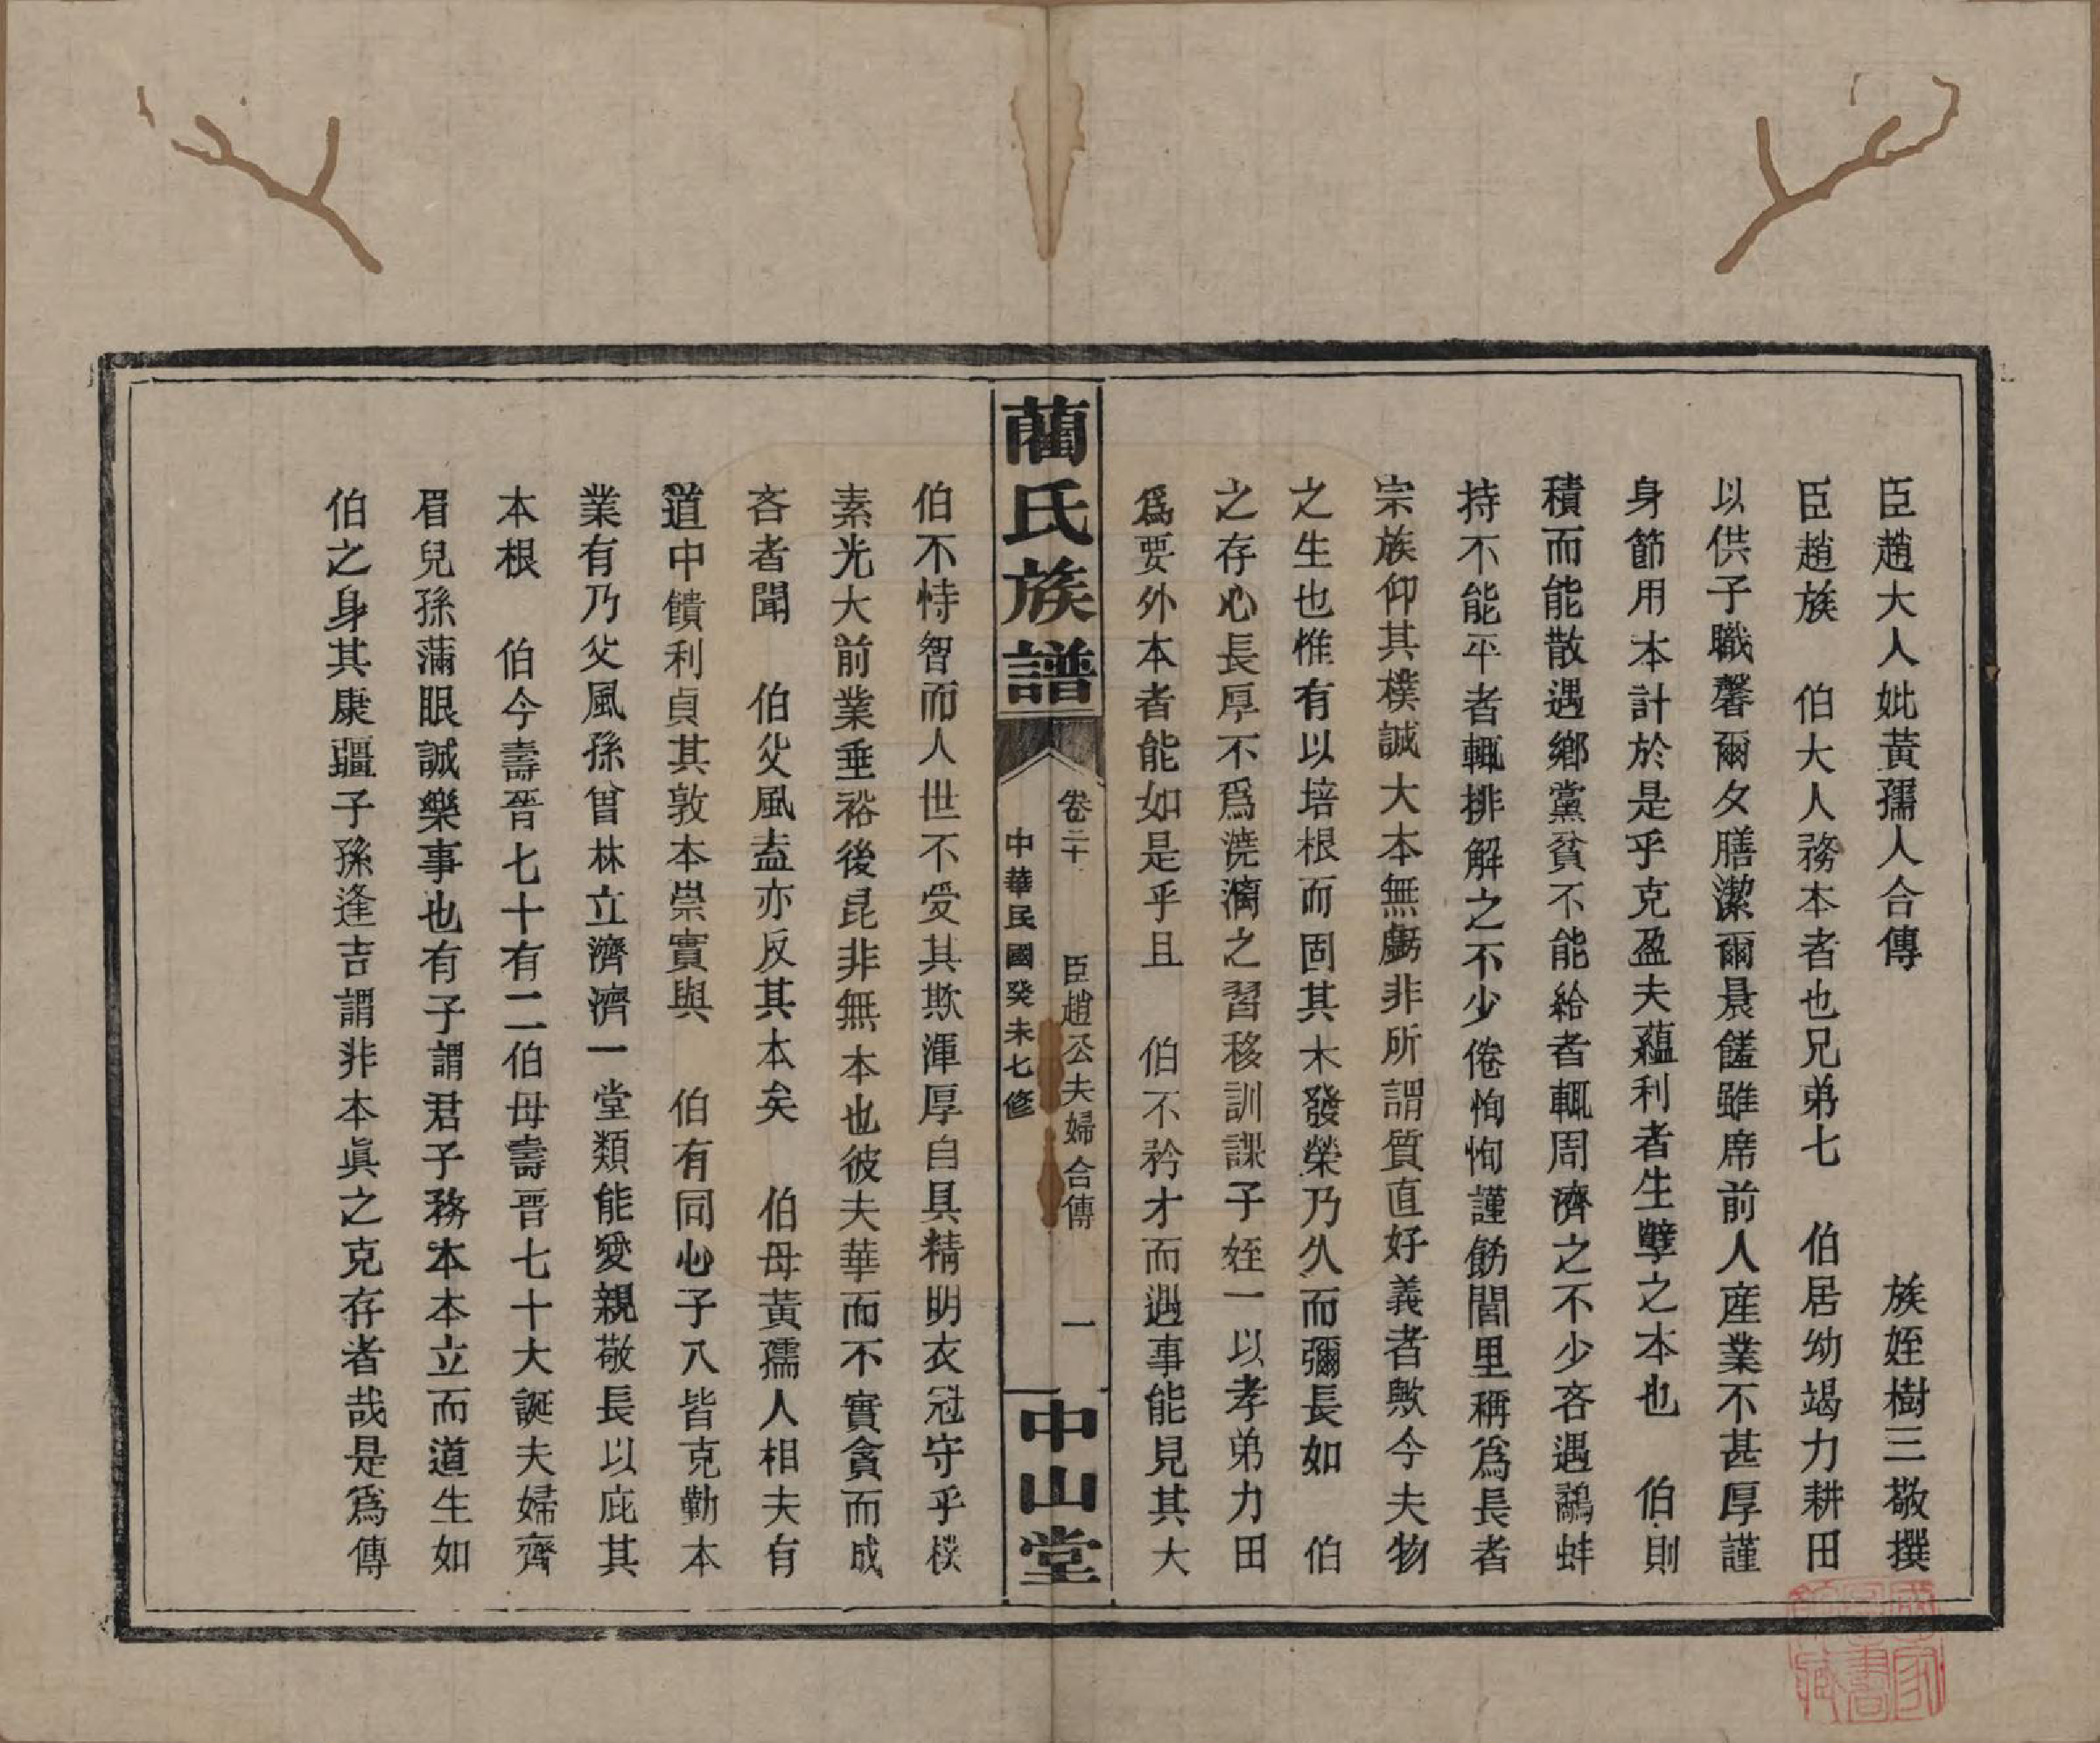 臣趙大人妣黃孺人合傳
族姪樹三敬撰
臣趙族　伯大人務本者也兄弟七　伯居幼竭力耕田
以供子職馨爾夕膳潔爾晨饈雖席前人産業不甚厚謹
身節用本計於是乎克盈夫蘊利者生孽之本也　伯則
積而能散遇鄉黨貧不能給者輒周濟之不少吝遇鷸蚌
持不能平者輒排解之不少倦恂恂謹飭閭里稱爲長者
宗族仰其樸誠大本無虧非所謂質直好義者歟今夫物
之生也惟有以培根而固其木發榮乃久而彌長如　伯
之存心長厚不爲澆漓之習移訓課子姪一以孝弟力田
爲要外本者能如是乎且　伯不矜才而遇事能見其大
藺氏族譜
卷二十
臣趙公夫婦合傳
一
中華民國癸未七修
中山堂
伯不恃智而人世不受其欺渾厚自具精明衣冠守乎樸
素光大前業垂裕後昆非無本也彼夫華而不實貪而成
吝者聞　伯父風盍亦反其本矣　伯母黃孺人相夫有
道中饋利貞其敦本崇實與　伯有同心子八皆克勤本
業有乃父風孫曾林立濟濟一堂類能愛親敬長以庇其
本根　伯今壽晉七十有二伯母壽晋七十大誕夫婦齊
眉兒孫滿眼誠樂事也有子謂君子務本本立而道生如
伯之身其康疆子孫逢吉謂非本眞之克存者哉是爲傳